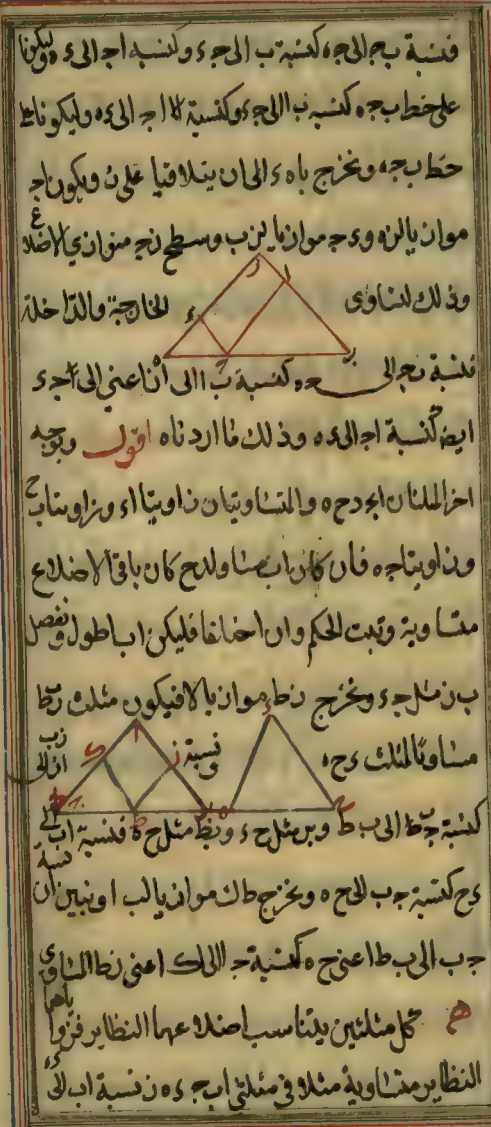 فنسبة ب ج الى ج ه كنسبة ب ا الى ج ء وكنسبة ا ج الى ء ه وليكونا
على خط ب ج ه كنسبة ب ا الى ج ء وكنسبة ا ج الى ء ه وليكونا على
خط ب ج ه ونخرج ب ا ه ء الى ان يتلاقيا على ز ويكون ا ج
موازيا لزه و ء ج موازيا لزب وسطح ز ج متوازي الاضلاع
وذلك لتساوى الخارجة والداخلة
فنسبة ب ج الى ج ه كنسبة ب ا الى ا ز اعني الى ج ء
ايضا كنسبة ا ج الى ء ه وذلك ما اردناه اقول وبوجه
اخر المثلثان ا ب ج د ح ه والمتساويتان زاويتا ا ء وزاويتا ب ح
وزاويتا ج ه فان كان ا ب مساويا لدح كان باقي الاضلاع
متساوية وثبت الحكم وان اختلفا فليكن ا ب اطول ونفصل
ب ز مثل ح ء ونخرج ز ط موازيا لا ج فيكون مثلث ز ب ط
مساويا لمثلث ء ح ه ونسبة ا ز الى ز ب
كنسبة ج ط الى ب ط و ب ز مثل ح ء و ب ط مثل ح ه فنسبة ا ب الى
ء ح كنسبة ج ب الى ح ه ونخرج ط ك موازيا لب ا ونبين ان نسبة
ج ب الى ب ط اعنى ح ه كنسبة ج ا الى ا ك اعنى ز ط المساوي
ه كل مثلثين يتناسب اضلاعهما النظاير فزواياهما
النظاير متساوية مثلا في مثلثي ا ب ج ء ه ز نسبة ا ب الى ء ه